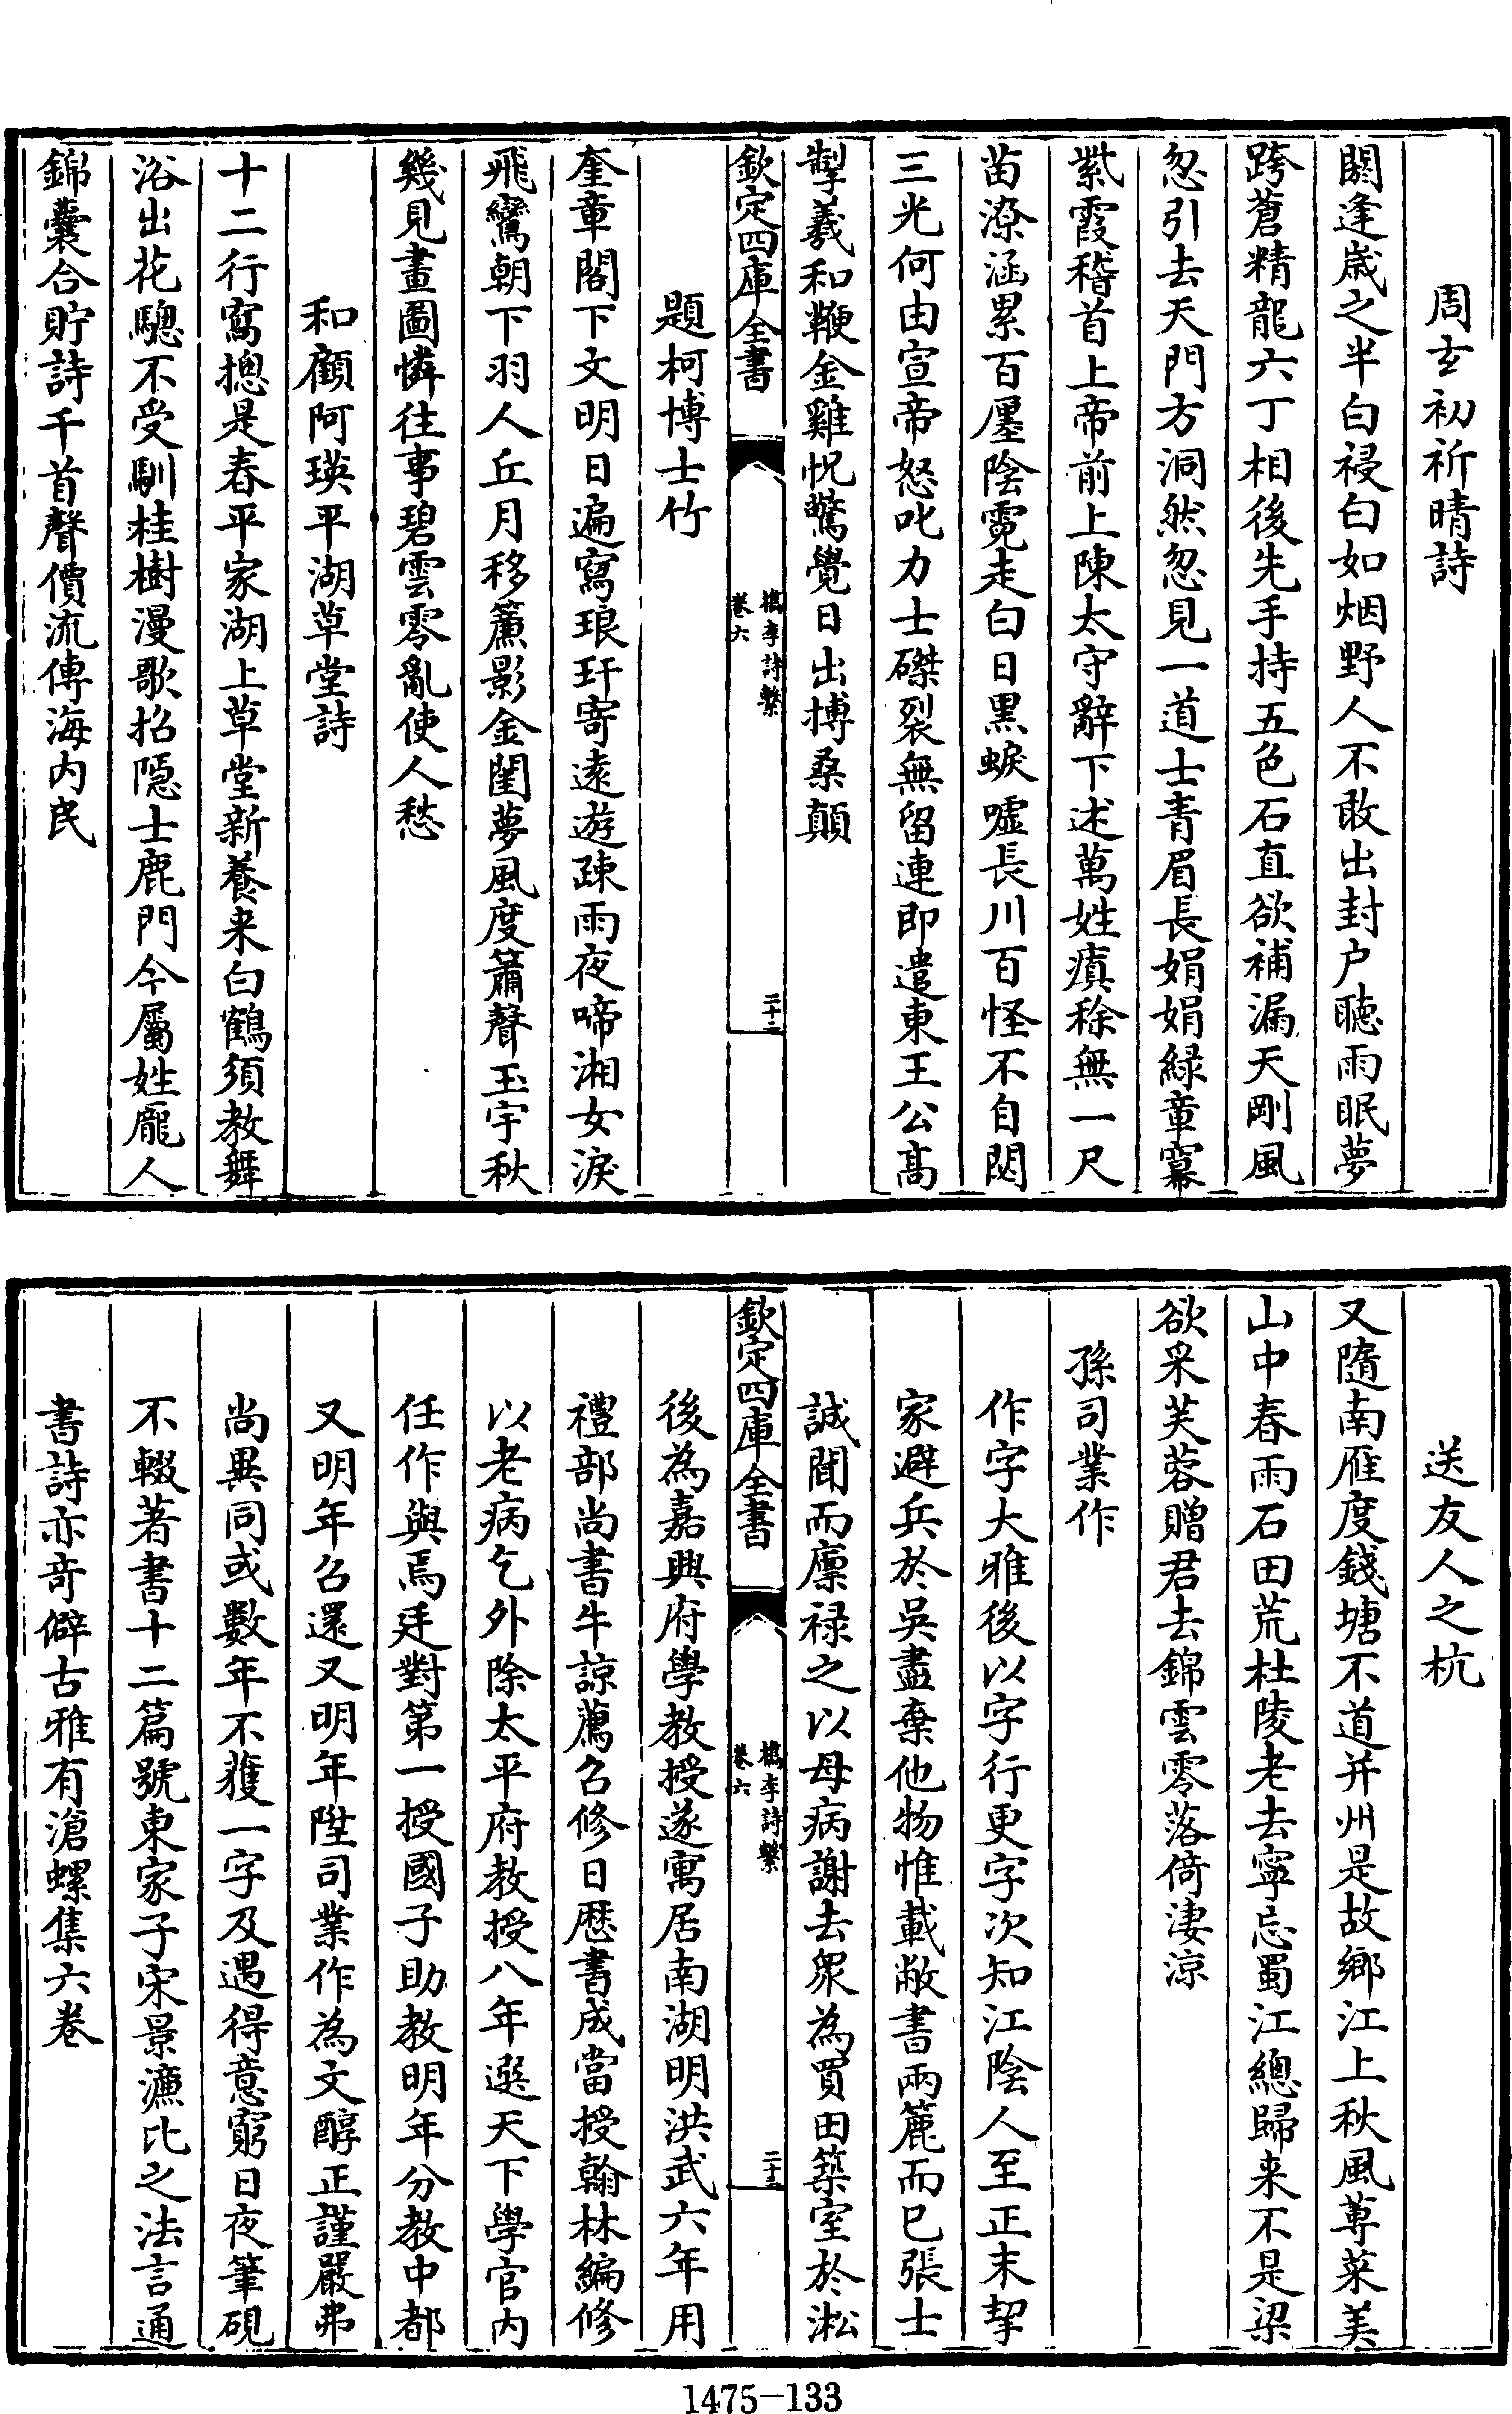 周玄初祈晴詩
閼逢嵗之半白祲白如烟野人不敢出封户聽雨眠夢
跨蒼精龍六丁相後先手持五色石直欲補漏天剛風
忽引去天門方洞然忽見一道士青眉長娟娟緑章寫
紫霞稽首上帝前上陳太守辭下述萬姓瘨稌無一尺
苗潦涵累百廛陰霓走白日黒蜧嘘長川百怪不自閟
三光何由宣帝怒叱力士磔裂無留連即遣東王公髙
掣羲和鞭金雞怳驚覺日出搏桑顛
欽定四庫全書
檇李詩繫
卷六
二十二
題柯博士竹
奎章閣下文明日遍寫琅玕寄逺遊疎雨夜啼湘女淚
飛鸞朝下羽人丘月移簾影金閨夢風度簫聲玉宇秋
幾見畫圖憐往事碧雲零亂使人愁
和顧阿瑛平湖草堂詩
十二行窩摠是春平家湖上草堂新養来白鶴須教舞
浴出花驄不受馴桂樹漫歌招隠士鹿門今屬姓龐人
錦囊合貯詩千首聲價流傳海内民
送友人之杭
又隨南雁度錢塘不道并州是故鄉江上秋風蓴菜美
山中春雨石田荒杜陵老去寧忘蜀江總歸来不是梁
欲采芙蓉贈君去錦雲零落倚淒涼
孫司業作
作字大雅後以字行更字次知江陰人至正末挈
家避兵於吳盡棄他物惟載敝書兩簏而已張士
誠聞而廩禄之以母病謝去衆為買田築室於淞
欽定四庫全書
檇李詩繫
卷六
二十三
後為嘉興府學教授遂寓居南湖明洪武六年用
禮部尚書牛諒薦召修日厯書成當授翰林編修
以老病乞外除太平府教授八年選天下學官内
任作與焉廷對第一授國子助教明年分教中都
又明年召還又明年陞司業作為文醇正謹嚴弗
尚異同或數年不獲一字及遇得意窮日夜筆硯
不輟著書十二篇號東家子宋景濂比之法言通
書詩亦竒僻古雅有滄螺集六卷
1475-133